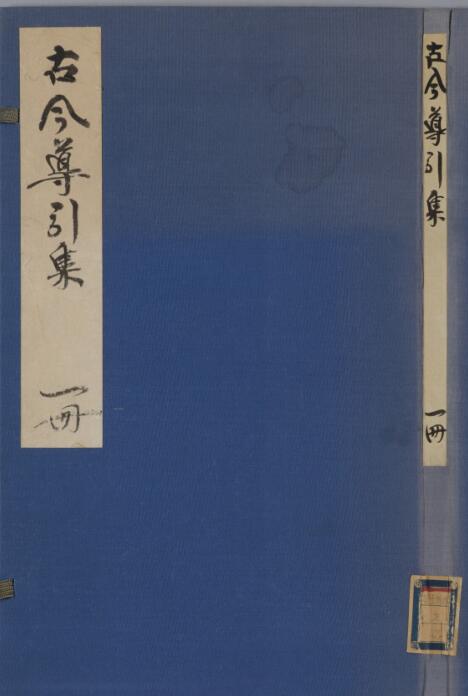 古今導引集
一冊
古今導引集
一冊